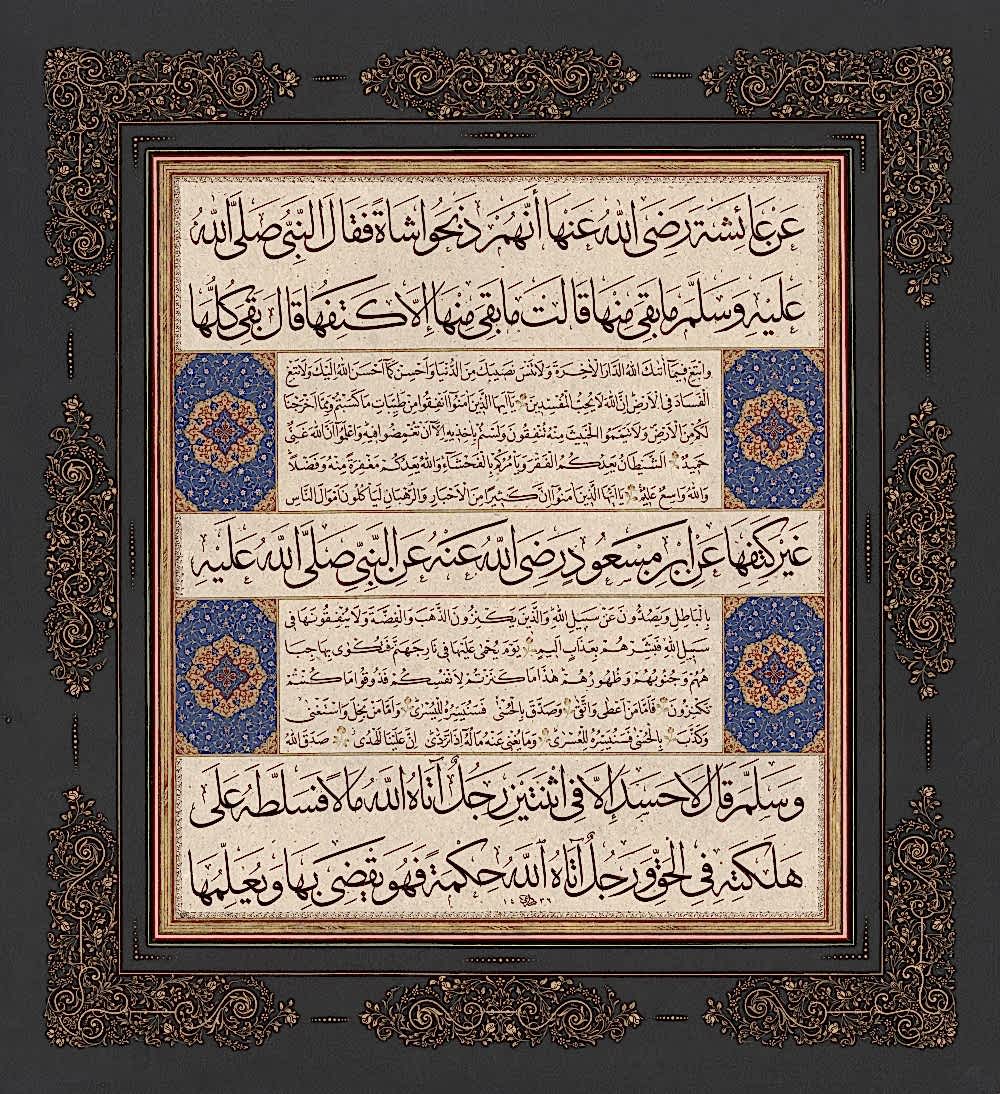 عن عائشة رضي الله عنها أنهم ذبحوا شاة فقال النبي صلى الله
عليه وسلم ما بقي منها قالت ما بقي منها إلا كتفها قال بقي كلها
وابتغ فيما آتاك الله الدار الآخرة ولا تنس نصيبك من الدنيا وأحسن كما أحسن الله إليك ولا تبغ
الفساد في الأرض إن الله لا يحب المفسدين يا أيها الذين آمنوا أنفقوا من طيبات ما كسبتم ومما أخرجنا
لكم من الأرض ولا تيمموا الخبيث منه تنفقون ولستم بآخذيه إلا أن تغمضوا فيه واعلموا أن الله غني
حميد الشيطان يعدكم الفقر ويأمركم بالفحشاء والله يعدكم مغفرة منه وفضلا
والله واسع عليم يا أيها الذين آمنوا إن كثيرا من الأحبار والرهبان ليأكلون أموال الناس
غير كتفها عن ابن مسعود رضي الله عنه عن النبي صلى الله عليه
بالباطل ويصدون عن سبيل الله والذين يكنزون الذهب والفضة ولا ينفقونها في
سبيل الله فبشرهم بعذاب أليم يوم يحمى عليها في نار جهنم فتكوى بها جبا
ههم وجنوبهم وظهورهم هذا ما كنزتم لأنفسكم فذوقوا ما كنتم
تكنزون فأما من أعطى واتقى وصدق بالحسنى فسنيسره لليسرى وأما من بخل واستغنى
وكذب بالحسنى فسنيسره للعسرى وما يغني عنه ماله إذا تردى إن علينا للهدى صدق الله
وسلم قال لا حسد إلا في اثنتين رجل آتاه الله مالا فسلطه على
هلكته في الحق ورجل آتاه الله حكمة فهو يقضي بها ويعلمها
١٤٣٦